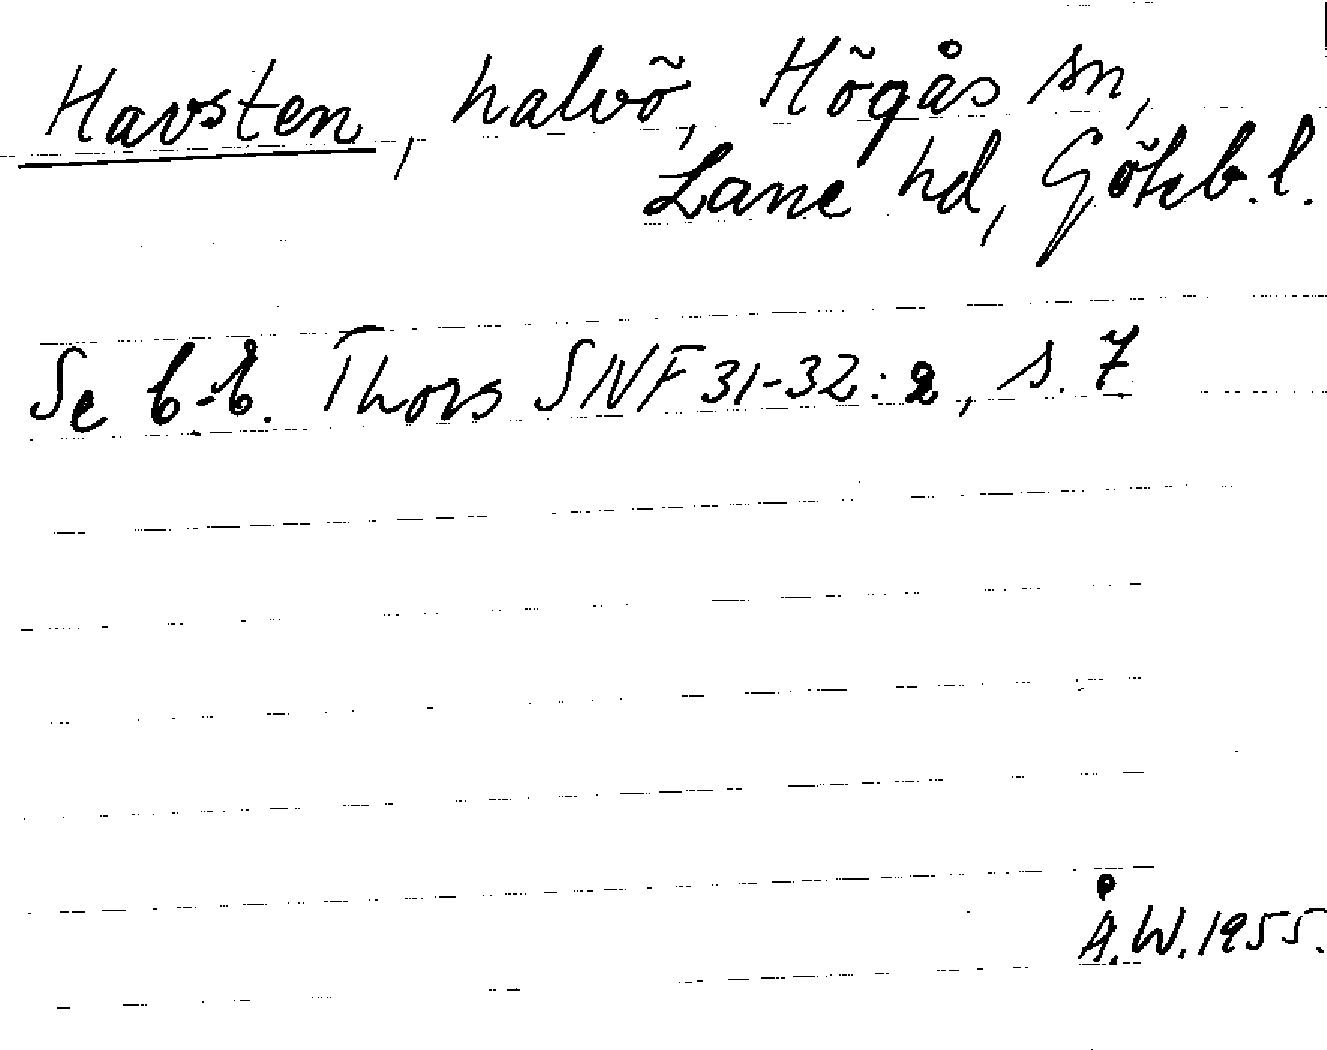 Havsten, halvö, Högås sn,
Lane hd, Göteb. l.
Se b.-b. Thors SNF 31-32:2, s. 7
Å.W. 1955.